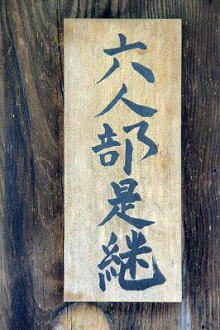 六人部是継